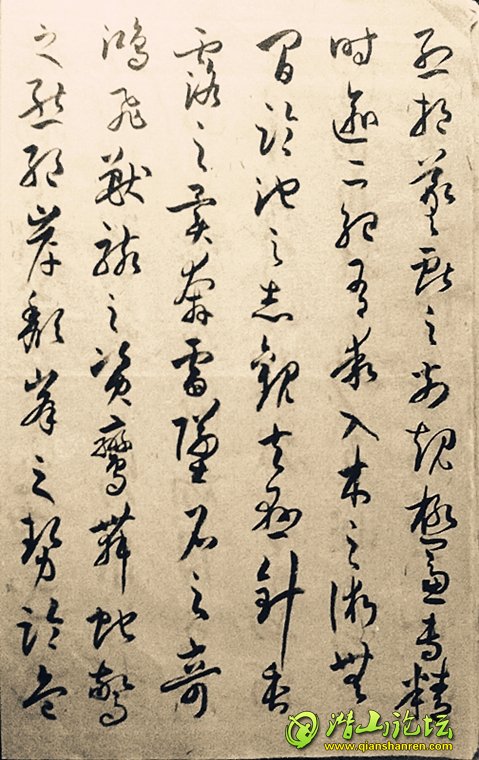 烈挹羲獻之前規極慮專精
時逾二紀有乖入木之術無
間臨池之志觀夫懸針垂
露之異奔雷墜石之奇
鴻飛獸駭之資鸞舞蛇驚
之態絕岸頹峯之勢臨危
潜山论坛
www.qianshanren.com